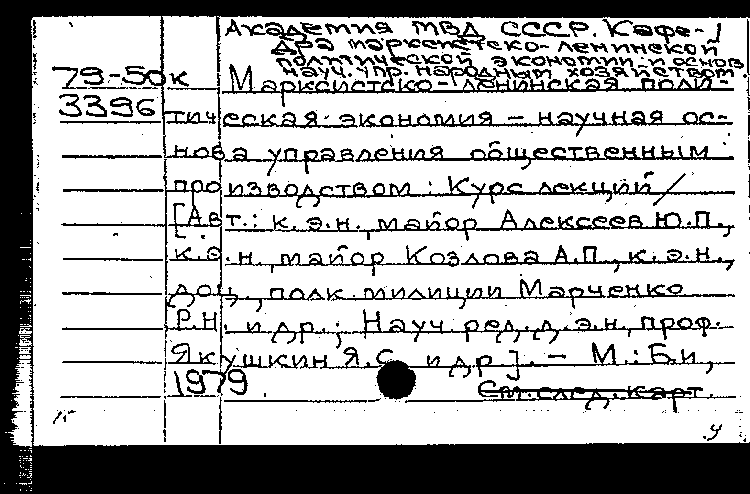 Академия МВД СССР. Кафе-
дра марксистско-ленинской
политической экономии и основ
науч. упр. народным хозяйством.
79-50к Марксистско-ленинская поли-
3396 тическая экономия – научная ос-
нова управления общественным
производством : Курс лекций /
[Авт.: к.э.н., майор Алексеев Ю.П.,
к.э.н., майор Козлова А.П., к.э.н.,
доц., полк. милиции Марченко
Р.Н. и др.; Науч. ред. д.э.н., проф.
Якушкин Я.С. и др.]. – М. : Б.и,
1979
См. след. карт.